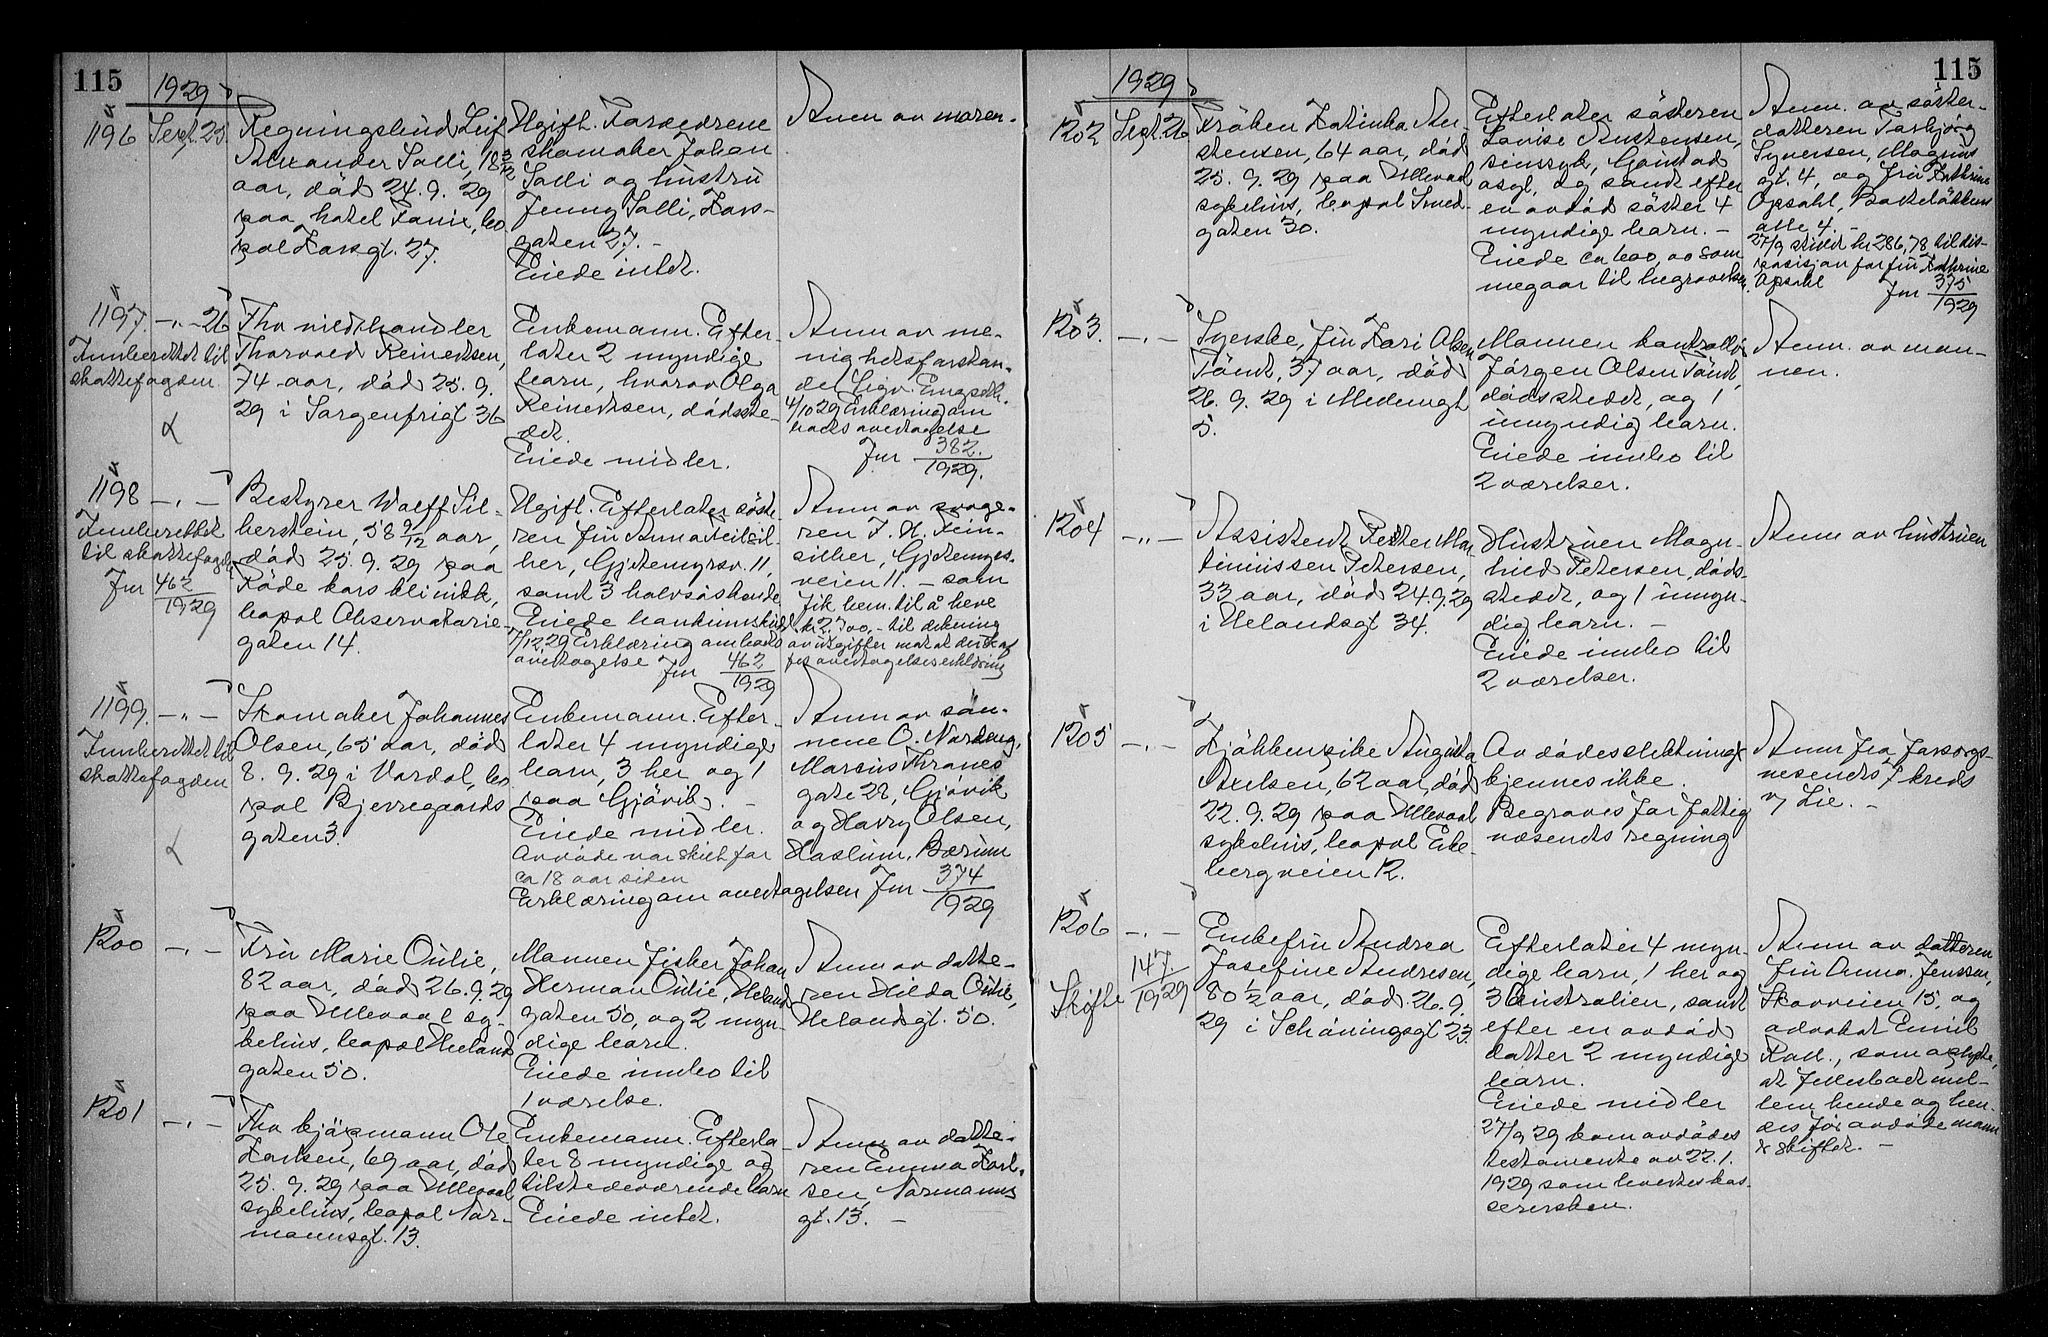 115
1929
1196 Sept. 25.
Regningsbud Leif
Alexander Salli, 18 3/12
aar, död 24. 9. 29
paa hotel Fønix, bo
pæl Korsgt. 27.
Ugift. Forældrene
skomaker Johan
Salli og hustru
Jenny Salli, Kors-
gaten 27. -
Eiede intet.
Anm av moren.
1197. -„- 26
Innberettet til
skattefogden
Fhv vedhandler
Thorvald Reinertsen,
74 aar, död 25. 9.
29 i Sorgenfrigt 36
Enkemann. Efter-
later 2 myndige
barn, hvorav Olga
Reinertsen, dödsste-
det.
Eiede midler.
Anm av me-
nighetsforstan-
der Sigv. Engseth.
4/10 29 Erklæring om
boets overtagelse
Jnr 382./1929.
1198 -„-
Innberettet
til skattefogden
Jnr 462/1929
Bestyrer Wolff Sil-
berstein, 58 9/12 aar,
död 25. 9. 29 paa
Röde kors klinikk,
bopæl Observatorie-
gaten 14.
Ugift. Efterlater söste-
ren fru Anna Feinsil-
ber, Gjetemyrsv. 11,
samt 3 halvsöskende
Eiede bankinnskudd
7/12 29 Erklæring om boets
overtagelse Jnr 462/1929
Anm av svoge-
ren J. H. Fein-
silber, Gjetemyrs-
veien 11. - som
fik bem. til å heve
kr 2700,- til dekning
av utgifter mot at der
overtagelseserklæring
1199. -„-
Innberettet til
skattefogden
Skomaker Johannes
Olsen, 65 aar, död
8. 9. 29 i Vardal, bo
pæl Bjerregaards
gaten 3.
Enkemann. Efter-
later 4 myndige
barn, 3 her og 1
paa Gjövik. -
Eiede midler.
Avdöde var skilt for
ca 18 aar siden
Erklæring om overtagelsen Jnr 374/1929
Anm av son-
nene O. Nordeng,
Marcus Thranes
gate 22, Gjövik
og Harry Olsen,
Haslum, Bærum
1200 -„-
Fru Marie Oulie,
82 aar, död 26. 9. 29
paa Ullevaal sy-
kehus, bopæl Heland
gaten 50.
Mannen fisker Johan
Herman Oulie, Heland
gaten 50, og 2 myn-
dige barn.
Eiede innbo til
1 værelse.
Anm av datte-
ren Hilda Oulie,
Helandsgt. 50.
1201 -„-
Fhv kjöpmann Ole
Karlsen, 69 aar, död
25. 9. 29 paa Ullevaal
sykehus, bopæl Nor-
mannsgt. 13.
Enkemann. Efterla-
ter 8 myndige og
tilstedeværende barn
Eiede intet.
Anm av datte-
ren Emma Karl-
sen, Normanns
gt. 13. -
115
1929
1202 Sept. 26
Fröken Katinka Au-
stensen, 64 aar, död
25. 9. 29 paa Ullevaal
sykehus, bopæl Smed-
gaten 30.
Efterlater søsteren
Lovise Austensen,
sinnssyk, Gaustad
asyl, og samt efter
en avdöd söster 4
myndige barn. -
Eiede ca 600,00 som
megaar til begravelsen.
Anm. av söster-
datteren Torbjörg
Syversen, Magnus
gt. 4, og fru Kathrine
Opsahl, Bakkeløkkens
alle 4. -
27/9 stillet kr 286,78 til dis-
posisjon for fru Kathrine
Opsahl Jnr 375/1929
1203. -„-
Syerske, fru Kari Olsen
Tömt, 37 aar, död
26. 9. 29 i
5.
Mannen kontrollör
Jörgen Olsen Tömt,
dödsstedet, og 1
umyndig barn.
Eiede innbo til
2 værelser.
Anm. av man-
nen.
1204 -„-
Assistent Petter Mar-
tiniussen Petersen,
33 aar, död 24. 9. 29
i Helandsgt 34.
Hustruen Magn-
hild Petersen, döds-
stedet, og 1 umyn-
dig barn. -
Eiede innbo til
2 værelser.
Anm av hustruen
1205 -„-
Kjökkenpike Augusta
Axelsen, 62 aar, död
22. 9. 29 paa Ullevaal
sykehus, bopæl Eke-
bergveien 12.
Avdödes slektninger
kjennes ikke.
Begraves for fattig
væsenets regning
Anm fra forsorgs-
vesenets 7 kreds
v/ Lie. -
1206 -„-
Skifte 147/1929
Enkefru Andrea
Josefine Andresen,
80 1/2 aar, död 26. 9.
29 i Schöningsgt 23
Efterlater 4 myn-
dige barn, 1 her og
3 i Australien, samt
efter en avdöd
datter 2 myndige
barn.
Eiede midler
27/9 29 kom avdödes
testamente av 22. 1.
1929 som levertes kas-
sereren.
Anm av datteren
fru Anna Jenssen,
Skovveien 15, og
advokat Emil
som oplyste,
at fellesboet mel-
lem hende og hen-
des för avdöde mann
er skiftet. -